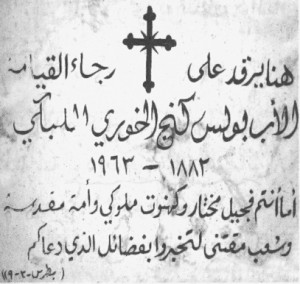 هنا يرقد على رجاء القيامة
الأب بولس كنج الخوري الملبكي
١٨٨٢ - ١٩٦٣
أما أنتم فجيل مختار وكهنوت ملوكي وأمة مقدسة
وشعب مقتنى لتخبروا بفضائل الذي دعاكم